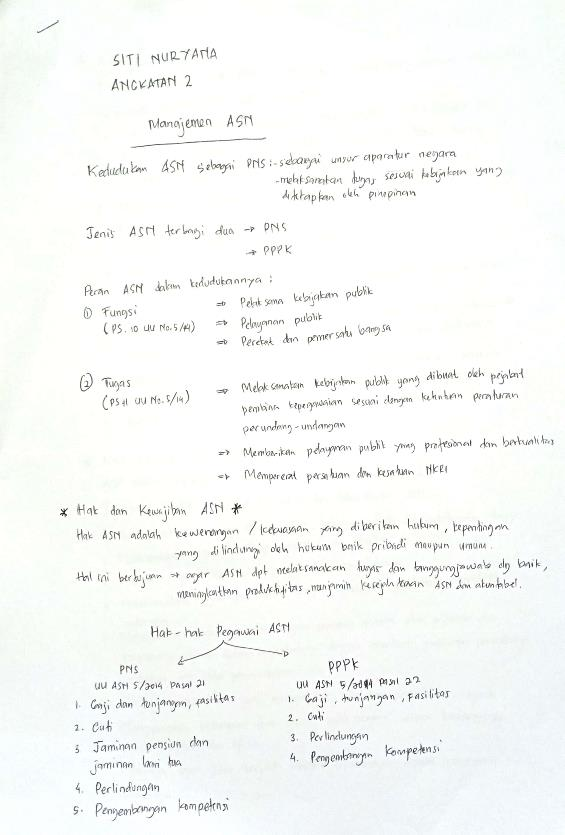 SITI NURYANA
ANGKATAN 2
Manajemen ASN
Kedudukan ASN sebagai PNS :- sebagai unsur aparatur negara
- melaksanakan tugas sesuai kebijakan yang
ditetapkan oleh pimpinan
Jenis ASN terbagi dua → PNS
→ PPPK
Peran ASN dalam kedudukannya :
① Fungsi ⇒ Pelaksana kebijakan publik
(PS. 10 UU No.5/14) ⇒ Pelayanan publik
⇒ Perekat dan pemersatu bangsa
② Tugas ⇒ Melaksanakan kebijakan publik yang dibuat oleh pejabat
(PS 11 UU No.5/14) pembina kepegawaian sesuai dengan ketentuan peraturan
perundang-undangan
⇒ Memberikan pelayanan publik yang profesional dan berkualitas
⇒ Mempererat persatuan dan kesatuan NKRI
* Hak dan Kewajiban ASN *
Hak ASN adalah kewenangan / kekuasaan yang diberikan hukum, kepentingan
yang dilindungi oleh hukum baik pribadi maupun umum.
Hal ini bertujuan → agar ASN dpt melaksanakan tugas dan tanggungjawab dg baik,
meningkatkan produktifitas, menjamin kesejahteraan ASN dan akuntabel.
Hak-hak Pegawai ASN
PNS
UU ASN 5/2014 Pasal 21
1. Gaji dan tunjangan, fasilitas
2. Cuti
3 Jaminan pensiun dan
jaminan hari tua
4. Perlindungan
5. Pengembangan kompetensi
PPPK
UU ASN 5/2014 Pasal 22
1. Gaji, tunjangan, Fasilitas
2. Cuti
3. Perlindungan
4. Pengembangan kompetensi